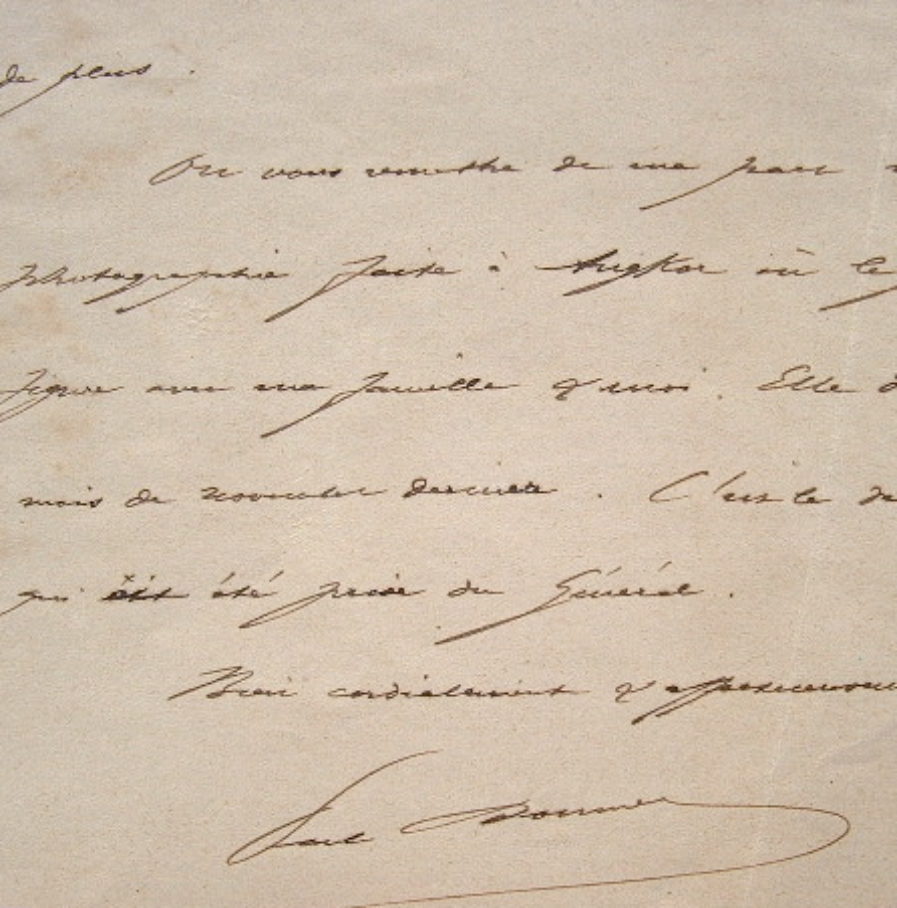 de plus.
On vous remettra de ma part
photographie faite à Angkor où le
figure avec ma famille & moi. Elle
mois de novembre dernier. C'est le
qui ait été prise du Général.
Bien cordialement & affectueuseme
Paul Doumer